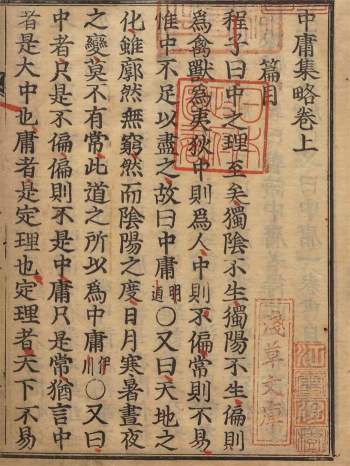 中庸集略卷上
篇目
程子曰中之理至矣獨陰不生獨陽不生偏則
爲禽獸爲夷狄中則爲人中則不偏常則不易
惟中不足以盡之故曰中庸明道○又曰天地之
化雖廓然無窮然而陰陽之度日月寒暑晝夜
之變莫不有常此道之所以爲中庸伊川○又曰
中者只是不偏偏則不是中庸只是常猶言中
者是大中也庸者是定理也定理者天下不易
淺草文庫